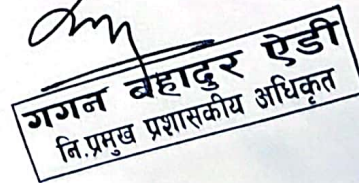 गगन बहादुर ऐडी
नि.प्रमुख प्रशासकीय अधिकृत